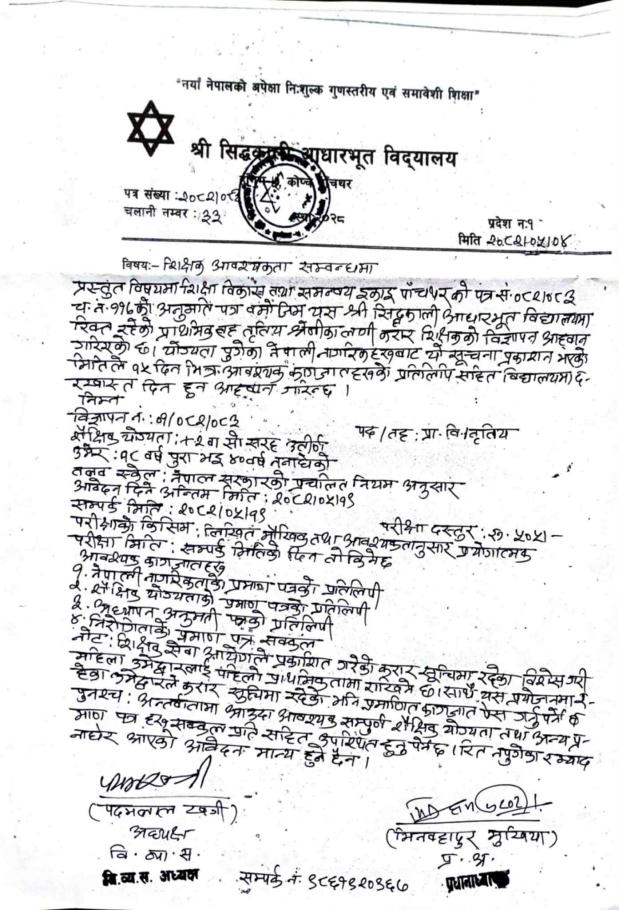 "नयाँ नेपालको अपेक्षा निःशुल्क गुणस्तरीय एवं समावेशी शिक्षा"
श्री सिद्धकाली आधारभूत विद्यालय
पत्र संख्या : २०८२/०८३
चलानी नम्बर : ३३
प्रदेश नं.१
मिति २०८२/०५/०४
विषय:- शिक्षक आवश्यकता सम्बन्धमा
प्रस्तुत विषयमा शिक्षा विकास तथा समन्वय इकाइ पाँचथरको पत्र सं. ०८२/०८३
च.नं. ११६ को अनुमति पत्र बमोजिम यस श्री सिद्धकाली आधारभूत विद्यालयमा
रिक्त रहेको प्राथमिक तह तृतिय श्रेणीका लागी करार शिक्षकको विज्ञापन आह्वान
गरिएको छ। योग्यता पुगेका नेपाली नागरिकहरुबाट यो सूचना प्रकाशन भएको
मितिले १५ दिन भित्र आवश्यक कागजातहरुको प्रतिलिपि सहित विद्यालयमा द-
रखास्त दिन हुन आह्वान गरिन्छ।
निम्न
विज्ञापन नं. : ०१/०८२/०८३
पद/तह : प्रा.वि./तृतिय
शैक्षिक योग्यता : +२ वा सो सरह उत्तीर्ण
उमेर : १८ वर्ष पुरा भइ ४० वर्ष ननाघेको
तलब स्केल : नेपाल सरकारको प्रचलित नियम अनुसार
आवेदन दिने अन्तिम मिति : २०८२/०५/१९
सम्पर्क मिति : २०८२/०५/१९
परीक्षा दस्तुर : रु. ५०५।-
परीक्षाको किसिम : लिखित मौखिक तथा आवश्यकतानुसार प्रयोगात्मक
परीक्षा मिति : सम्पर्क मितिको दिन तोकिनेछ
आवश्यक कागजातहरु
१. नेपाली नागरिकताको प्रमाण पत्रको प्रतिलिपी
२. शैक्षिक योग्यताको प्रमाण पत्रको प्रतिलिपी
३. अध्यापन अनुमती पत्रको प्रतिलिपी
४. निरोगिताको प्रमाण पत्र सक्कल
नोट : शिक्षक सेवा आयोगले प्रकाशित गरेको करार सूचिमा रहेका विशेस गरी
महिला उमेद्वारलाई पहिलो प्राथमिकतामा राखिने छ। साथै यस प्रयोजनमा र-
हेका उमेद्वारले करार सुचिमा रहेको भनि प्रमाणित कागजात पेस गर्नुपर्नेछ
पुनश्च : अन्तर्वार्तामा आउदा आवश्यक सम्पुर्ण शैक्षिक योग्यता तथा अन्य प्र-
माण पत्र हरु सक्कल प्रति सहित उपस्थित हुनु पर्नेछ। रित नपुगेका र म्याद
नाघेर आएको आवेदन मान्य हुने छैन।
अध्यक्ष
वि. व्य. स.
वि.व्य.स. अध्यक्ष
सम्पर्क नं. ९८६१९२०३६७
(मिनबहादुर मुखिया)
प्र. अ.
प्रधानाध्यापक